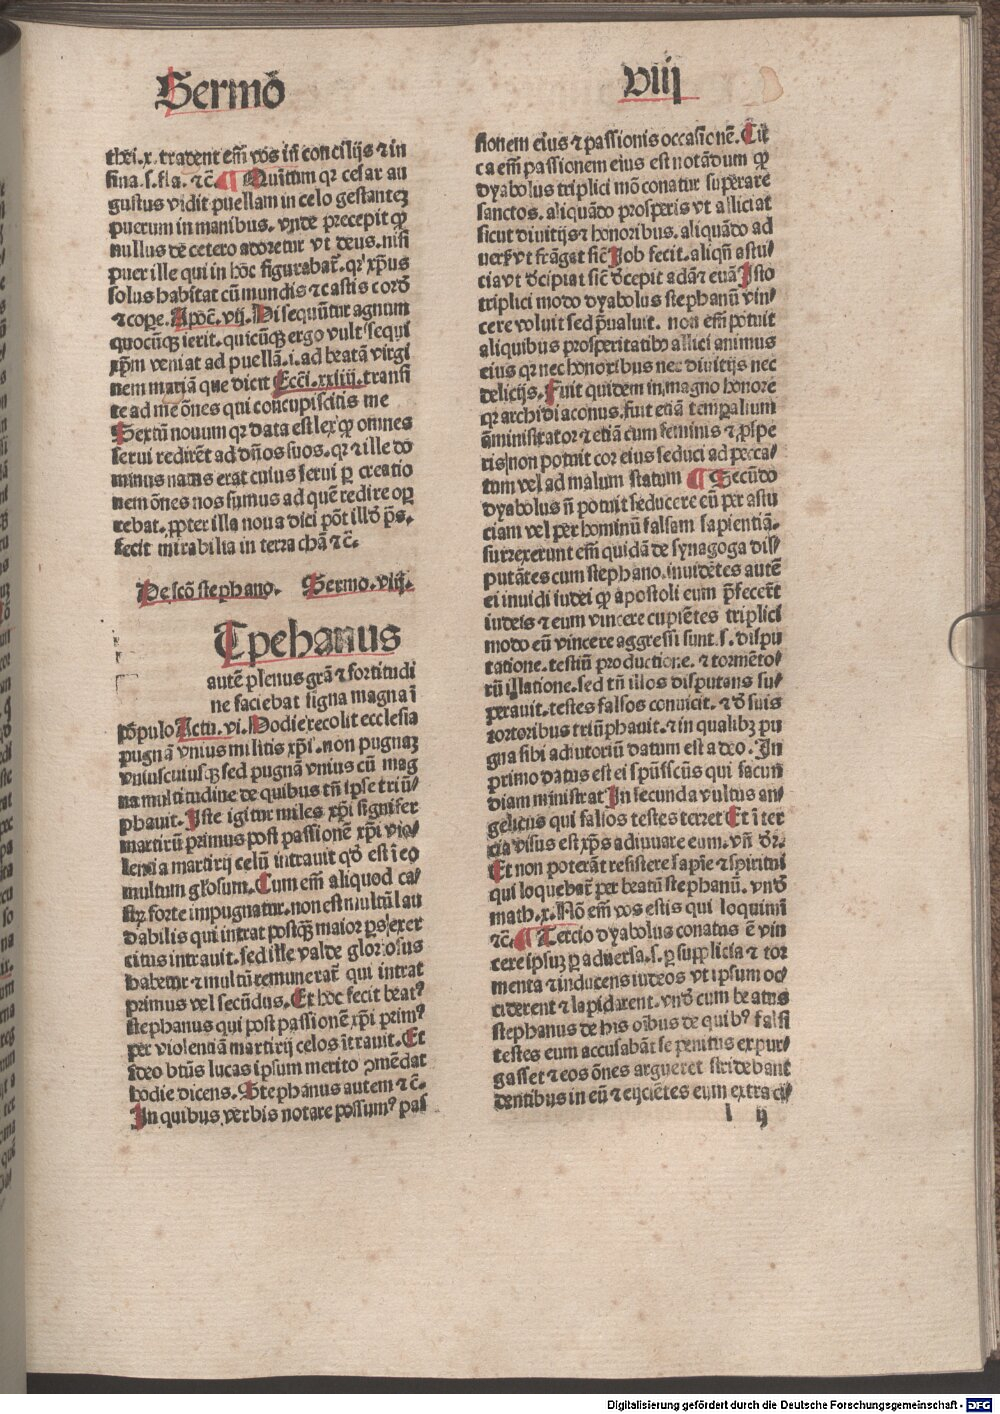 Sermo̅
viij
thei.x. tradent em̅ vos in̅ concilijs ⁊ in
sina.s.fla. ⁊c̅. ¶ Quintum qꝛ cesar au
gustus vidit puellam in celo gestanteꝫ
puerum in manibus. vnde precepit ꝙ
nullus de cetero adoretur vt deus. nisi
puer ille qui in hoc figurabat᷑. qꝛ xp̅us
solus habitat cu̅ mundis ⁊ castis cord̅
⁊ coꝛpe. Apoc̅. vij. Hi sequu̅tur agnum
quocu̅qꝫ ierit. quicu̅qꝫ ergo vult sequi
xp̅m veniat ad puella̅.i. ad beata̅ virgi
nem maria̅ que dicit Ecci̅.xxiiij. transi
te ad me o̅nes qui concupiscitis me
Sextu̅ nouum qꝛ data est lex ꝙ omnes
serui redire̅t ad dn̅os suos. qꝛ ⁊ ille do
minus natus erat cuius serui ꝑ creatio
nem o̅nes nos sumus ad que̅ redire opꝛ
tebat. ꝓpter illa noua dici po̅t illd̅ ps̅.
fecit mirabilia in terra cha̅ ⁊c̅.
De sco̅ stephano. Sermo. viij.
Tpehanus
aute̅ plenus gra̅ ⁊ fortitudi
ne faciebat signa magna i̅
po̅pulo Actu. vi. Hodie recolit ecclesia
pugna̅ vnius militis xp̅i. non pugnaꝫ
vniuscuiusqꝫ sed pugna̅ vnius cu̅ mag
na multitudine de quibus tn̅ ipse triu̅/
phauit. Iste igitur miles xp̅i signifer
martiru̅ primus post passione̅ xp̅i vio/
lentia martirij celu̅ intrauit qd̅ est i̅ eo
multum glo̅sum. Cum em̅ aliquod ca/
stꝝ forte impugnatur. non est multu̅ lau
dabilis qui intrat postqꝫ maior ps̅ exer
citus intrauit. sed ille valde gloriosus
habetur ⁊ multu̅ remunerat᷑ qui intrat
primus vel secu̅dus. Et hoc fecit beatꝰ
stephanus qui post passione̅ xp̅i primꝰ
per violentia̅ martirij celos i̅trauit. Et
ideo bt̅us lucas ipsum merito ꝯme̅dat
hodie dicens. Stephanus autem ⁊ c̅.
In quibus verbis notare possumꝰ pas
sionem eius ⁊ passionis occasione̅. Cir
ca em̅ passionem eius est nota̅dum ꝙ
dyabolus triplici mo̅ conatur superare
sanctos. aliqua̅do prosperis vt alliciat
sicut diuitijs ⁊ honoribus. aliqua̅do ad
uerẜ vt fra̅gat sic̅ Job fecit. aliqn̅ astu/
cia vt d̅cipiat sic̅ d̅cepit ada̅ ⁊ eua̅ Isto
triplici modo dyabolus stephanu̅ vin/
cere voluit sed p̅ualuit. non em̅ potuit
aliquibus prosperitatibꝰ allici animus
eius qꝛ nec honoribus nec diuitijs nec
delicijs. Fuit quidem in magno honore
qꝛ archidiaconus. fuit etia̅ tempalium
a̅ministrator ⁊ etia̅ cum feminis ⁊ ꝓspe
ris non potuit cor eius seduci ad pecca/
tum vel ad malum statum ¶ Secu̅do
dyabolus n̅ potuit seducere eu̅ per astu
ciam vel per hominu̅ falsam sapientia̅.
surrexerunt em̅ quida̅ de synagoga dis/
puta̅tes cum stephano. inuide̅tes aute̅
ei inuidi iudei ꝙ apostoli eum p̅fecere̅t
iudeis ⁊ eum vincere cupie̅tes triplici
modo eu̅ vincere aggressi sunt. s. dispu
tatione. testiu̅ productione. ⁊ torme̅to/
ru̅ illatione. sed tn̅ illos disputans su/
perauit. testes falsos conuicit. ⁊ d̅ suis
tortoribus triu̅phauit. ⁊ in qualibꝫ pu
gna sibi adiutoriu̅ datum est a deo. In
primo datus est ei spu̅ssc̅us qui facun
diam ministrat In secunda vultus an/
gelicus qui falsos testes terret Et i̅ ter
cia visus est xp̅s adiuuare eum. vn̅ dr̅.
Et non potera̅t resistere sapi̅e ⁊ spiritui
qui loquebat᷑ per beatu̅ stephanu̅. vnd̅
math.x. No̅ em̅ vos estis qui loquimi̅
⁊c̅. ¶ Tercio dyabolus conatus e̅ vin
cere ipsuꝫ ꝑ aduersa. s. ꝑ supplicia ⁊ tor
menta ⁊ inducens iudeos vt ipsum oc/
ciderent ⁊ lapidarent. vnd̅ cum beatus
stephanus de his oi̅bus de quibꝰ falsi
testes eum accusaba̅t se penitus expur/
gasset ⁊ eos o̅nes argueret stridebant
dentibus in eu̅ ⁊ eijcie̅tes eum extra ci/
l ij
Digitalisierung gefördert durch die Deutsche Forschungsgemeinschaft - DFG